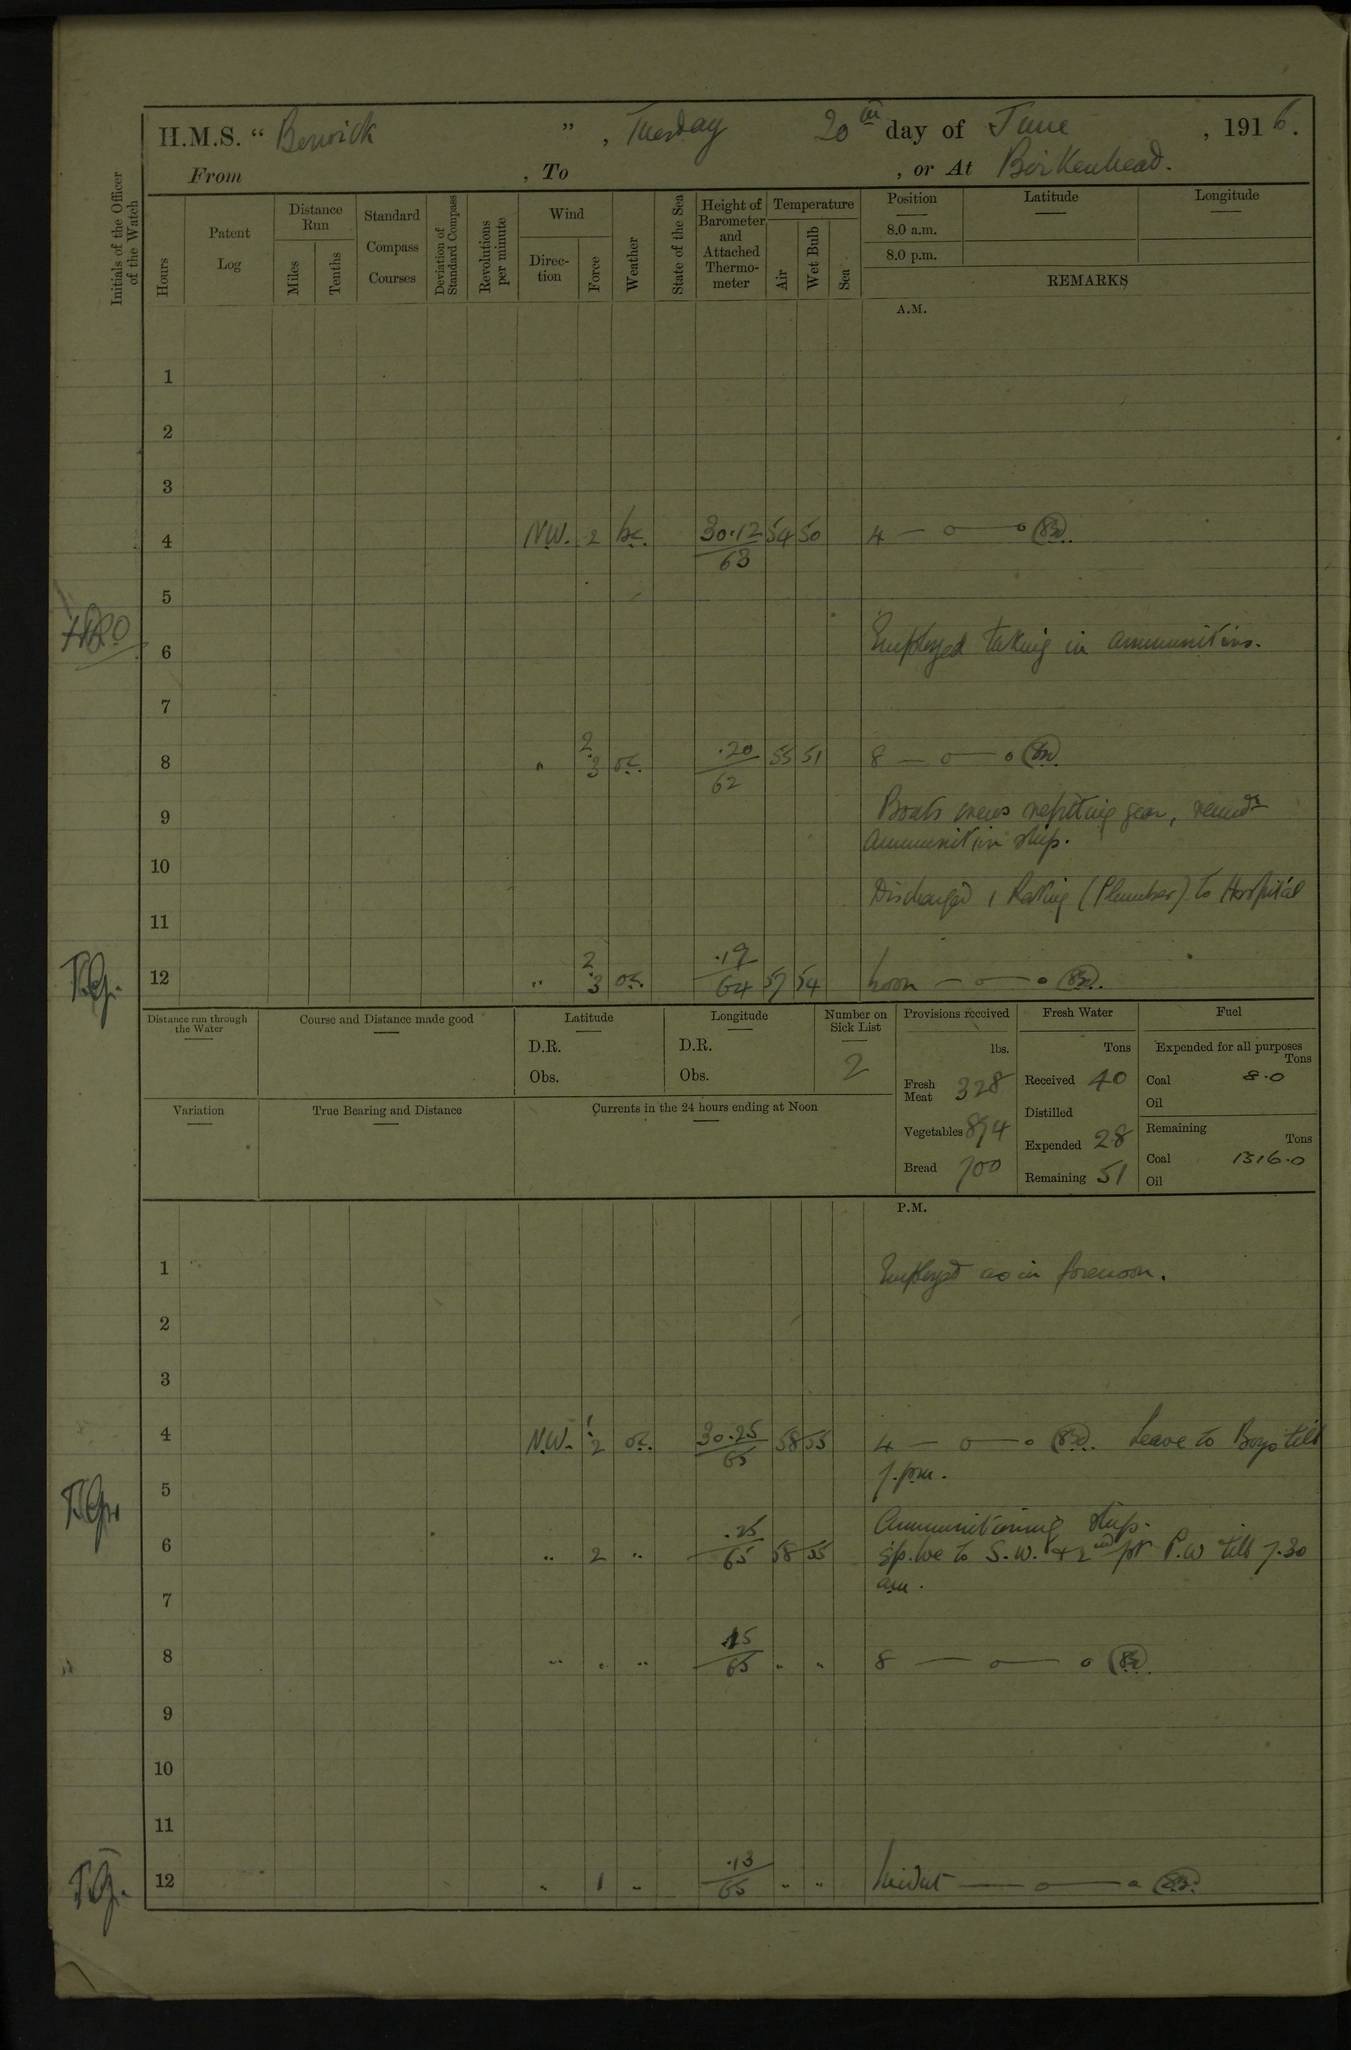 H.M.S. “ Berwick ” , Tuesday 20th day of June , 1916.
From , To , or At Birkenhead.
Initials of the Officer of the Watch
Hours
Patent Log
Distance Run
Miles
Tenths
Standard Compass Courses
Deviation of Standard Compass
Revolutions per minute
Wind
Direction
Force
Weather
State of the Sea
Height of Barometer and Attached Thermometer
Temperature
Air
Wet Bulb
Sea
Position Latitude Longitude
8.0 a.m.
8.0 p.m.
REMARKS
A.M.
1
2
3
4 N.W. 2 bc. 30.12/63 54 50 4 — o — o
5
6 Employed taking in ammunition.
7
8 " 2.3 oc. .20/62 55 51 8 — o — o
9 Boats crews refitting gear, remdr
ammunition ship.
10
Discharged 1 Rating (Plumber) to Hospital
11
T.G. 12 " 2.3 oc. .19/64 57 54 Noon — o — o
Distance run through the Water
Course and Distance made good
Latitude
D.R.
Obs.
Longitude
D.R.
Obs.
Number on Sick List
2
Provisions received
lbs.
Fresh Meat 328
Vegetables 894
Bread 700
Fresh Water
Tons
Received 40
Distilled
Expended 28
Remaining 51
Fuel
Expended for all purposes
Tons
Coal 8.0
Oil
Remaining
Tons
Coal 1316.0
Oil
Variation
True Bearing and Distance
Currents in the 24 hours ending at Noon
P.M.
1 Employed as in forenoon.
2
3
4 N.W. 1.2 oc. 30.25/65 58 55 4 — o — o Leave to Boys till
7.pm.
5
Ammunitioning ship.
6 " 2 " .25/65 58 55 Sp. lve to S.W. & 2nd pt P.W till 7.30
am.
7
" 8 " " " .15/65 " " 8 — o — o
9
10
11
T.G. 12 " 1 " .13/65 " " Midnt — o — o